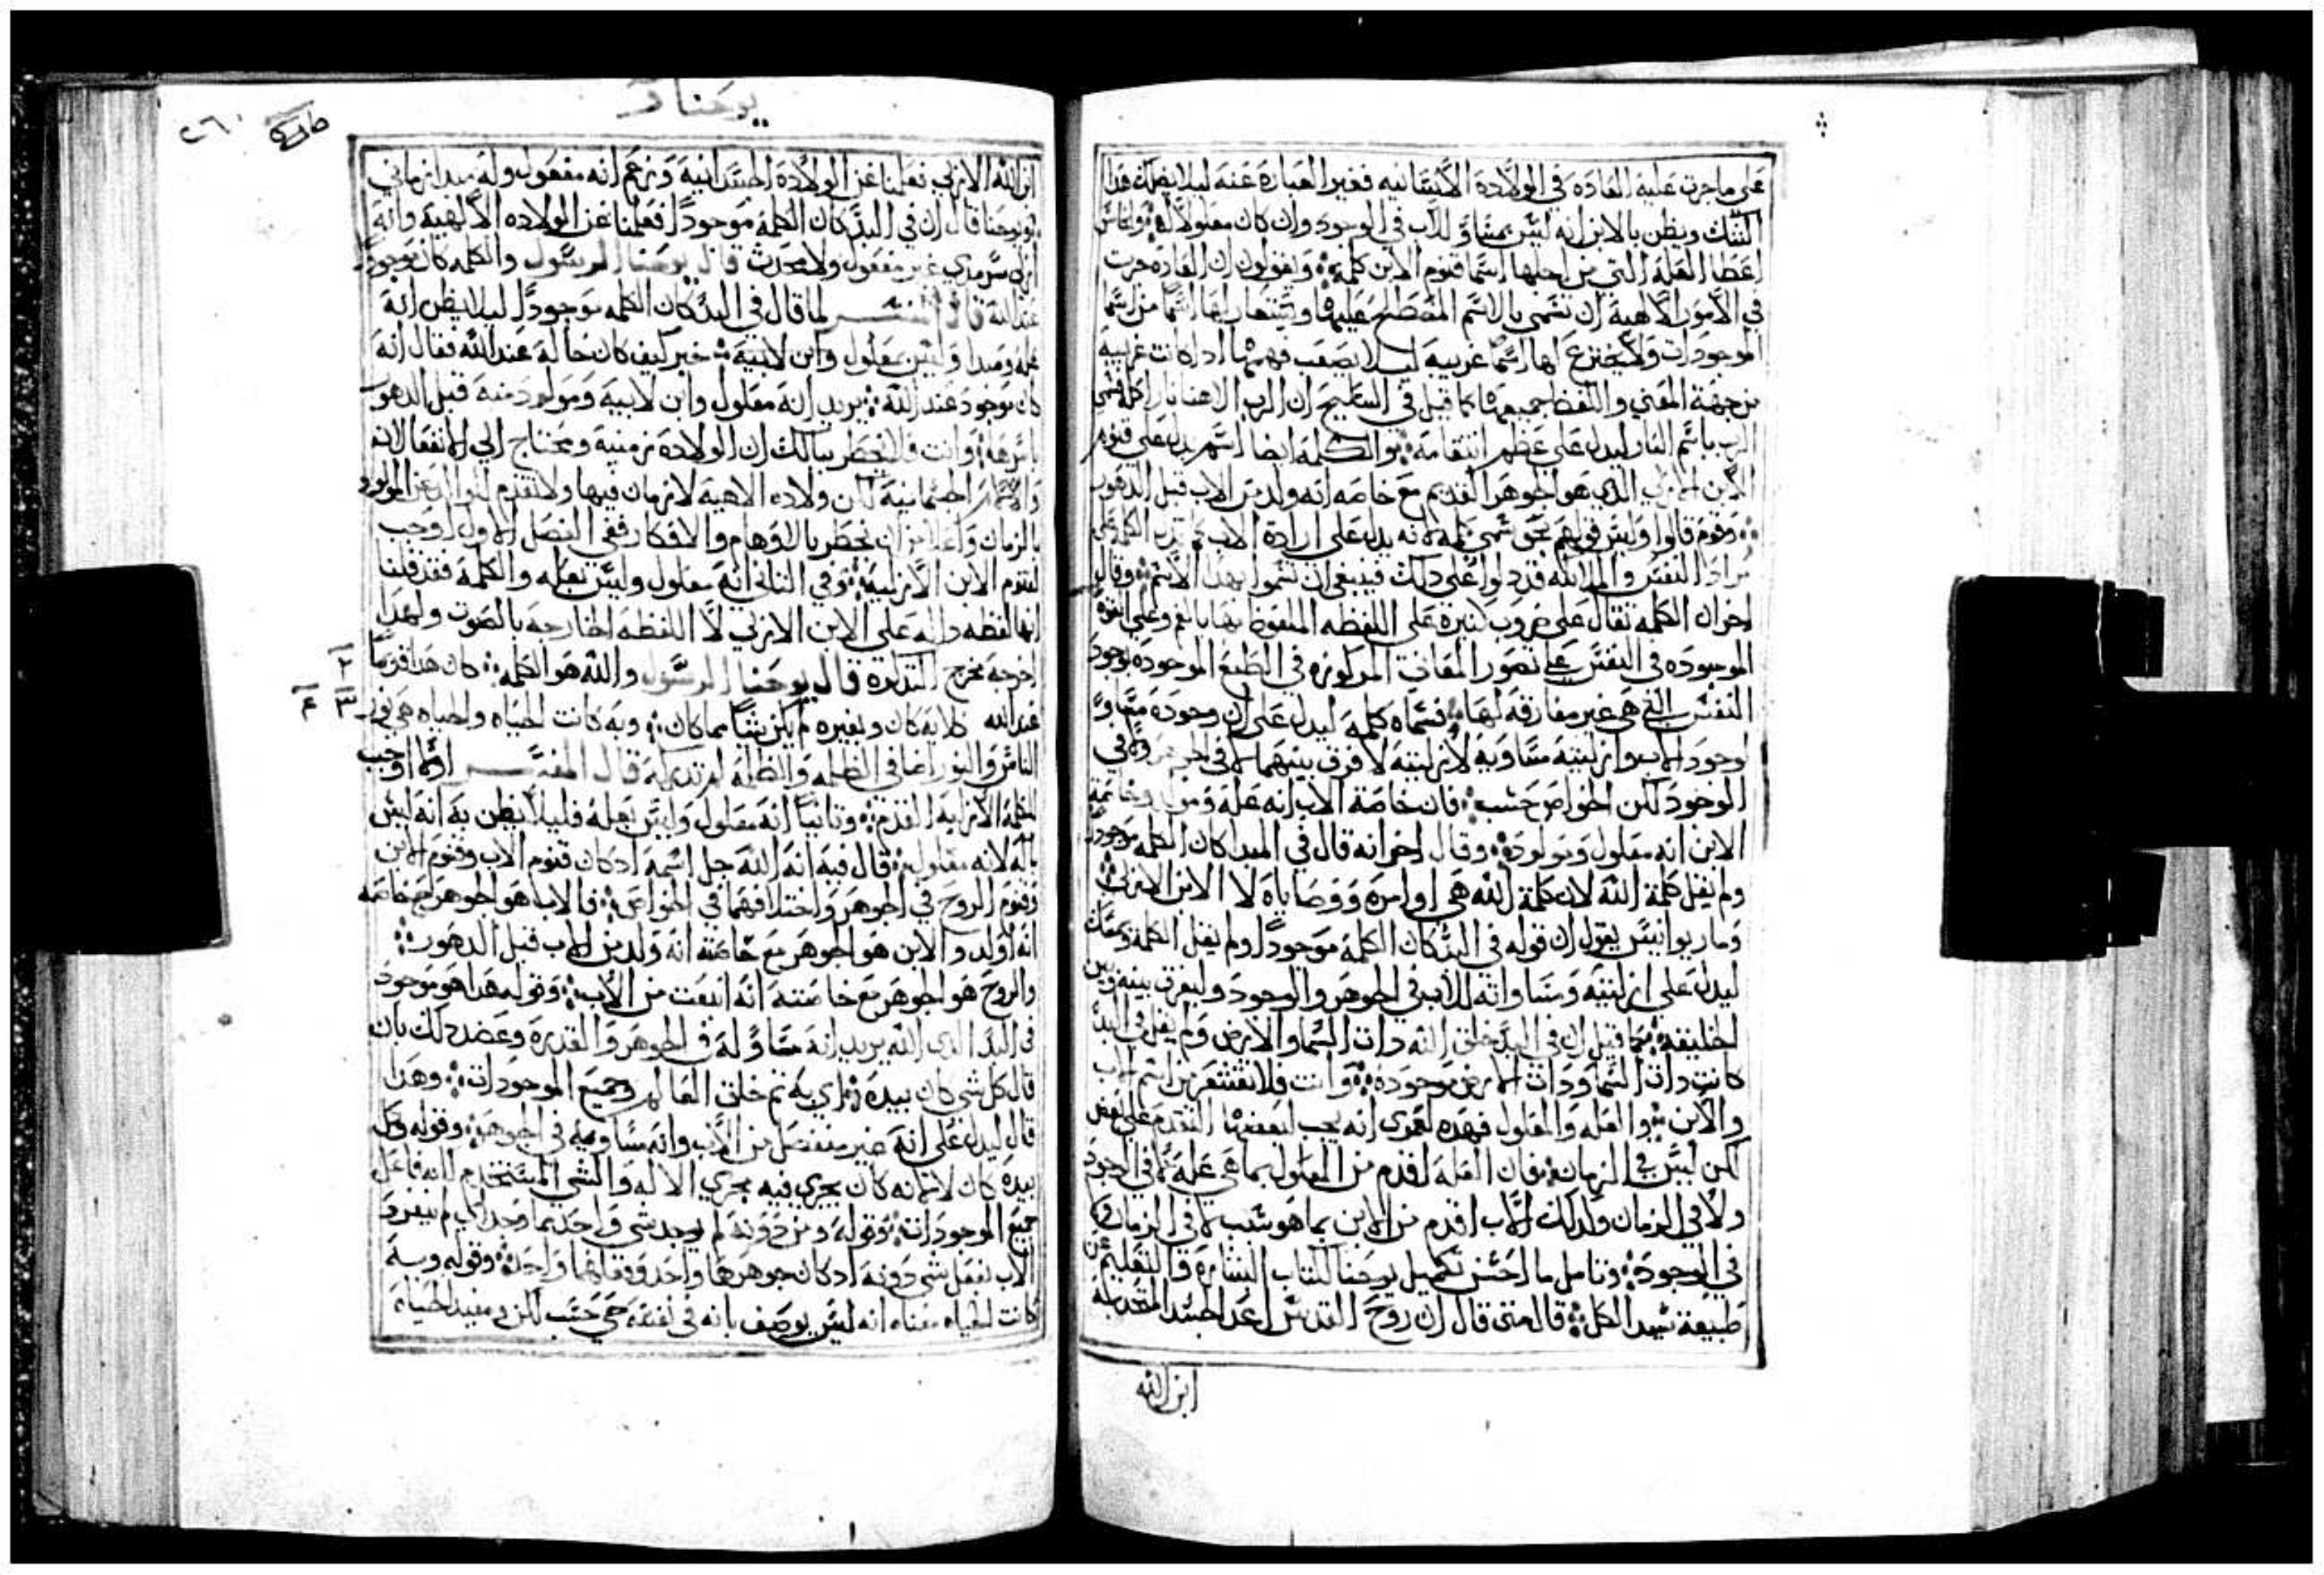 على ماجرت عليه العاده في الولادة الانسانيه فغير العبارة عنه ليلا يضلك هذا
الشك ويظن بالابن انه ليس بمساو للاب في الوجود وان كان معلولا له
اعطا العلة التي من اجلها اسما قنوم الابن كلمة ويقولون ان العاده جرت
في الامور الالاهية ان تسمى بالاسم المصطلح عليه او يستعار لها اسما من اسما
الموجودات ولا يخترع لها اسما غريبة ليلا يصعب فهمها اد كانت غريبة
من جهة المعني واللفظ جميعها كما قيل في التسابيح ان الرب الاهنا نار اكله فسمي
الرب باسم النار ليدل على عظم انتقامه والكلمة ايضا اسم يدل على قنوم
الابن الازلي الدي هو الجوهر القديم مع خاصه انه ولد من الاب قبل الدهور
وقوم قالوا وليس قولهم بحق سمي كلمه لانه يدل على ارادة الاب كما تدل الكلمة على
مراد النفس والملايكه قد دلوا على دلك فينبغي ان يسموا بهدا الاسم وقال
اخر ان الكلمه تقال على ضروب كتيرة على اللفظه الملفوظ بها بالفم وعلى القوة
الموجوده في النفس على تصور المعاني المركوزه في الطبع الموجوده بوجود
النفس التي هي غير مفارقه لها فسماه كلمة ليدل على ان وجوده مساو
لوجود الاب وازليته مساوية لازليته لا فرق بينهما لا في الجوهر ولا في
الوجود لكن الخواص حسب فان خاصة الاب انه علة وخاصة
الابن انه معلول ومولود وقال اخر انه قال في المبدا كان الكلمه موجودا
ولم يقل كلمة الله لان كلمة الله هي اوامره ووصاياه لا الابن الازلي
ومار يوانيس يقول ان قوله في البد كان الكلمة موجودا ولم يقل الكلمة
ليدل على ازليته ومساواته للاب في الجوهر والوجود وليفرق بينه وبين
الخليقه كما قيل ان في البد خلق الله دات السما والارض ولم يقل في البد
كانت دات السما ودات الارض موجوده وانت فلا تقشعر من اسم الاب
والابن والعله والمعلول فهده لعمري انه يجب لبعضها التقدم على بعض
لكن ليس في الزمان فان العلة اقدم من المعلول بما هي علة لا في الوجود
ولا في الزمان وكدلك الاب اقدم من الابن بما هو سبب لا في الزمان ولا
في الوجود وتامل ما احسن تكميل يوحنا لكتاب البشارة والتعليم عن
طبيعة سيد الكل قال متى قال ان روح القدس اعد الجسد المتحد به
ابن الله
يوحنا
٢٦٠
ابن الله الازلي فعلمنا عن الولادة الجسدانية وزعم انه مفعول وله مبدا زماني
ويوحنا قال ان في البد كان الكلمة موجودا فعلمنا عن الولاده الالهية وانه
ازلي سرمدي غير مفعول ولا محدث قال يوحنا الرسول والكلمه كان موجودا
عند الله قال المفسر لما قال في البد كان الكلمه موجودا ليلا يظن انه
علة ومبدا وليس بمعلول وابن لابيه خبر كيف كان حاله عند الله فقال انه
كان موجود عند الله يريد انه معلول وابن لابيه ومولود منه قبل الدهور
باسرها وانت فلا يخطر ببالك ان الولادة زمنية وتحتاج الي الانفعال لانه
الجسمانية لكن ولاده الاهية لا زمان فيها ولا تقدم للوالد عن المولود
بالزمان ان تخطر بالاوهام والافكار ففي الفصل الاول اوجب
لقنوم الابن الازلية وفي التاني انه معلول وليس بعله والكلمة فقد قلنا
انها لفظه داله على الابن الازلي لا اللفظه الخارجه بالصوت ولهدا
اخرجه مخرج التدكرة قال يوحنا الرسول والله هو الكلمه كان هدا قديما
٢
عند الله كل به كان وبغيره لم يكن شيا مما كان وبه كانت الحياه والحياه هي نور
٣ ٤
الناس والنور اضا في الظلمه والظلمة لم تدركه قال المفسر اولا اوجب
للكلمة الازليه القدم وتانيا انه معلول وليس بعله فليلا يظن به انه ليس
باله لانه معلول قال فيه انه الله جل اسمه اد كان قنوم الاب وقنوم الابن
وقنوم الروح في الجوهر واختلافهما في الخواص فالاب هو الجوهر مع خاصه
انه اولد والابن هو الجوهر مع خاصته انه ولد من الاب قبل الدهور
والروح هو الجوهر مع خاصته انه انبعت من الاب وقوله هدا هو موجود
في البدا لدي الله يريد انه مساو له في الجوهر والقدره وعضد دلك بان
قال كل شي كان بيده اي به تم خلق العالم وجميع الموجودات وهدا
قال ليدل على انه غير منفصل من الاب وانه مساويه في الجوهر وقوله وكل
بيده كان لا انه كان يجري فيه مجري الاله والشي المستخدم لانه فاعل
جميع الموجودات وقوله ومن دونه لم يوجد شي واحد مما وجد لم ينفرد
الاب بفعل شي دونه اد كان جوهرهما واحد وفعالهما واحده وقوله وبه
كانت الحياه معناه انه ليس يوصف بانه في نفسه حي حسب لكن ومفيد الحياه